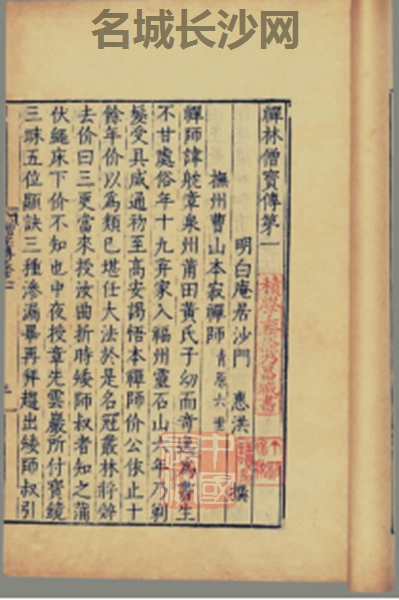 名城长沙网
禪林僧寶傳第一
明白庵居沙門 惠洪 撰
撫州曹山本寂禪師 青原六世
禪師諱躭章泉州莆田黃氏子幼而奇逸為書生
不甘處俗年十九弃家入福州靈石山六年乃剃
髮受具咸通初至高安謁悟本禪師价公依止十
餘年价以為類已堪任大法於是名冠叢林將辤
去价曰三更當來授汝曲折時矮師叔者知之蒲
伏繩床下价不知也中夜授章先雲巖所付寶鏡
三昧五位顯訣三種滲漏畢再拜趍出矮師叔引
中國